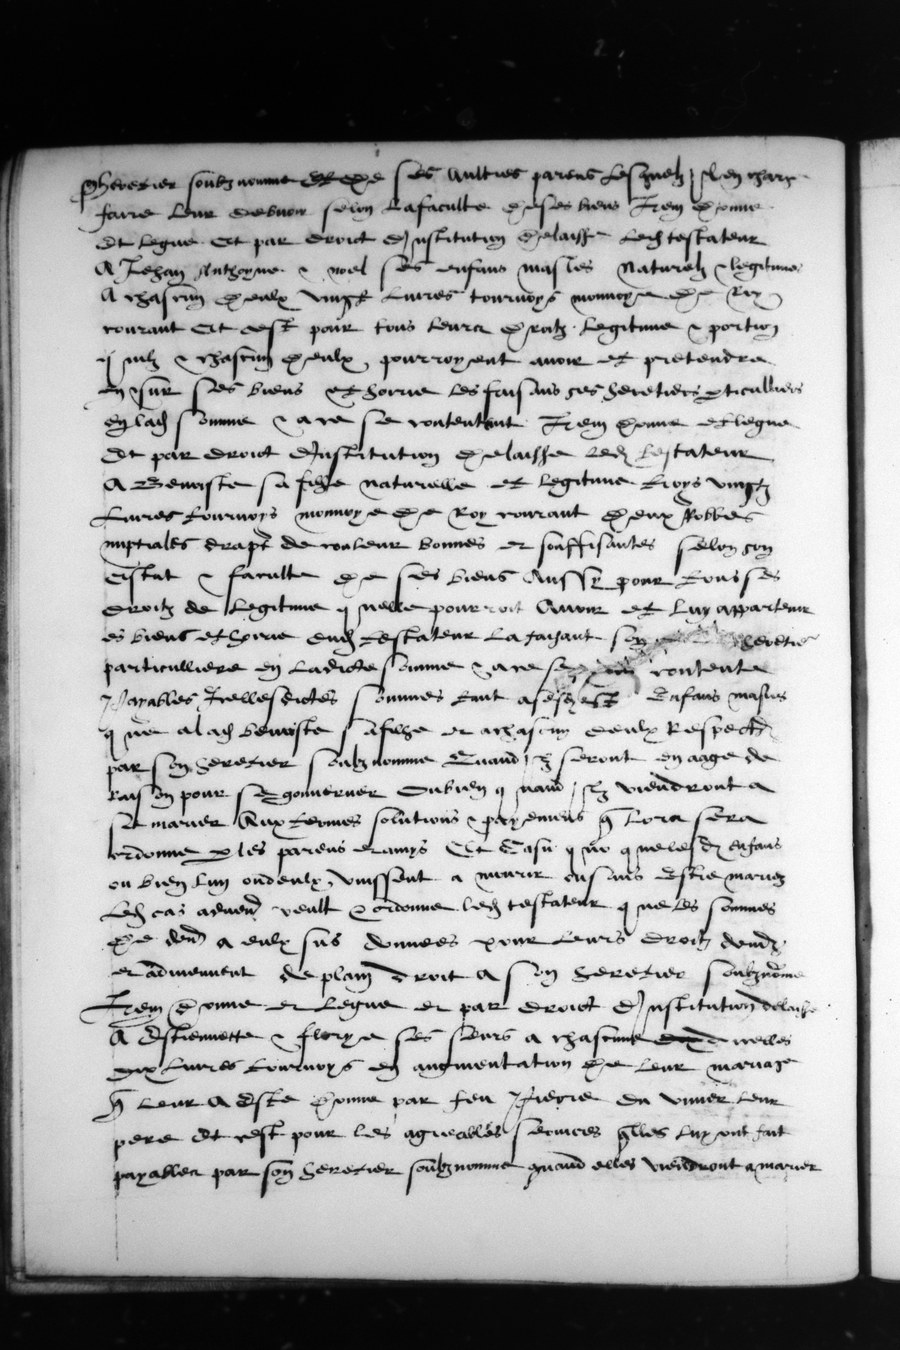 heretier soubznomme et de ses aultres parens lesquelz il en charge
faire leur debvoir selon la faculte de ses biens Item donne
et legue et par droict d'institution delaisse led testateur
A Jehan Anthoyne & noel ses enfans masles naturelz & legitimes
A chascun d'eulx vingt livres tournoys monnoye de Roy
courant et cest pour tous leurs droitz legitime & portion
qu'ilz & chascun d'eulx pourroyent avoir et pretendre
en & sur ses biens et hoirie les faisans ses heretiers particulliers
en lad somme & a ce se contentent Item donne et legue
et par droict d'institution delaisse led testateur
A Benoiste sa fille naturelle et legitime troys vingtz
livres tournoys monnoye de Roy courant deux Robbes
nuptiales drapt de couleur bonnes et souffisantes selon son
estat & faculte de ses biens Aussy pour tous ses
droitz de legitime quelle pourroit Avoir et luy appartenir
es biens et hoirie dud testateur la faisant son heretiere
particulliere en ladicte somme & a ce se contente
Payables Icellesdictes sommes tant a sesd enfans masles
que a lad benoiste sa filhe et a chascun deulx Respect
par son heretier soubznomme Quand ilz seront en aage de
raison pour se gouverner Ou bien quand ilz viendront a
se marier Aux termes solutions & payemens que lors sera
ordonne par les parens et amys Et Casu quo que lesd enfans
ou bien lun ou deulx vinssent a mourir sans Estre mariez
Led cas advent veult & ordonne led testateur que les sommes
de dem a eulx sus donnees pour leurs droitz
et adviennent de plain droit A son heretier soubznomme
Item donne et legue et par droict d'institution delaisse
A Estiennette & florye ses seurs a chascune dicelles
dix livres tournoys en augmentation de leur mariage
que leur A este donne par feu pierre du vivier leur
pere Et cest pour les agreables services qu'elles luy ont fait
payables par son heretier soubznomme quand elles viendront a marier